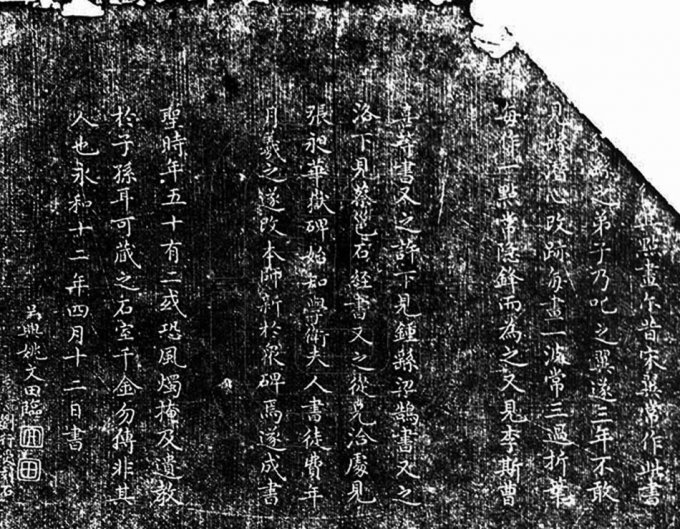 點畫尔昔宋翼常作此書
繇之弟子乃叱之翼遂三年不敢
見繇潛心改跡每畫一波常三過折筆
每作一點常隱鋒而為之又見李斯曹
喜等書又之許下見鍾繇梁鵠書又之
洛下見蔡邕石經書又之從兄洽處見
張昶華嶽碑始知學衛夫人書徒費年
月羲之遂改本師新於衆碑焉遂成書
聖時年五十有二或恐風燭掩及遺教
於子孫耳可藏之石室千金勿傳非其
人也永和十二年四月十二日書
吳興姚文田臨